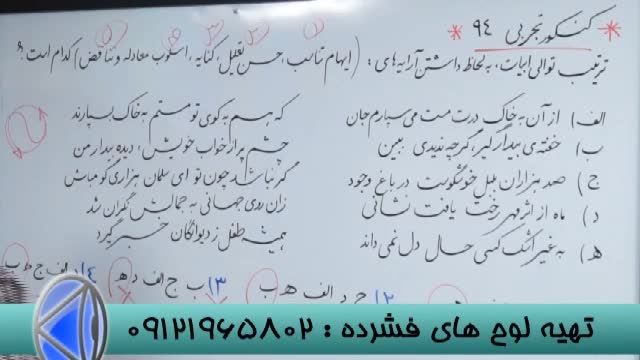 * کنکور تجربی ۹۴ *
ترتیب توالی ابیات، به لحاظ داشتن آرایه های: (ایهام تناسب، حسن تعلیل، کنایه، اسلوب معادله و تناقض) کدام است؟
الف) از آن به خاک درت مست می سپارم جان که هم به کوی تو مستم به خاک بسپارند
ب) خفته ی بیدار گیر، گرچه ندیدی ببین چشم پر از خواب خویش، دیده بیدار من
ج) صد هزاران بلبل خوشگوست در باغ وجود گر نباشد چون تو ای سلمان هزاری گو مباش
د) ماه از اثر مهر رخت یافت نشانی زان روی جهانی به جمالش نگران شد
ه) به غیر اشک کسی حال دل نمی داند همیشه طفل ز دیوانگان خبر گیرد
۲) ج د الف ه ب
۳) ب ج الف د ه
۴) د الف ج ه ب
تهیه لوح های فشرده : ۰۹۱۲۱۹۶۵۸۰۲